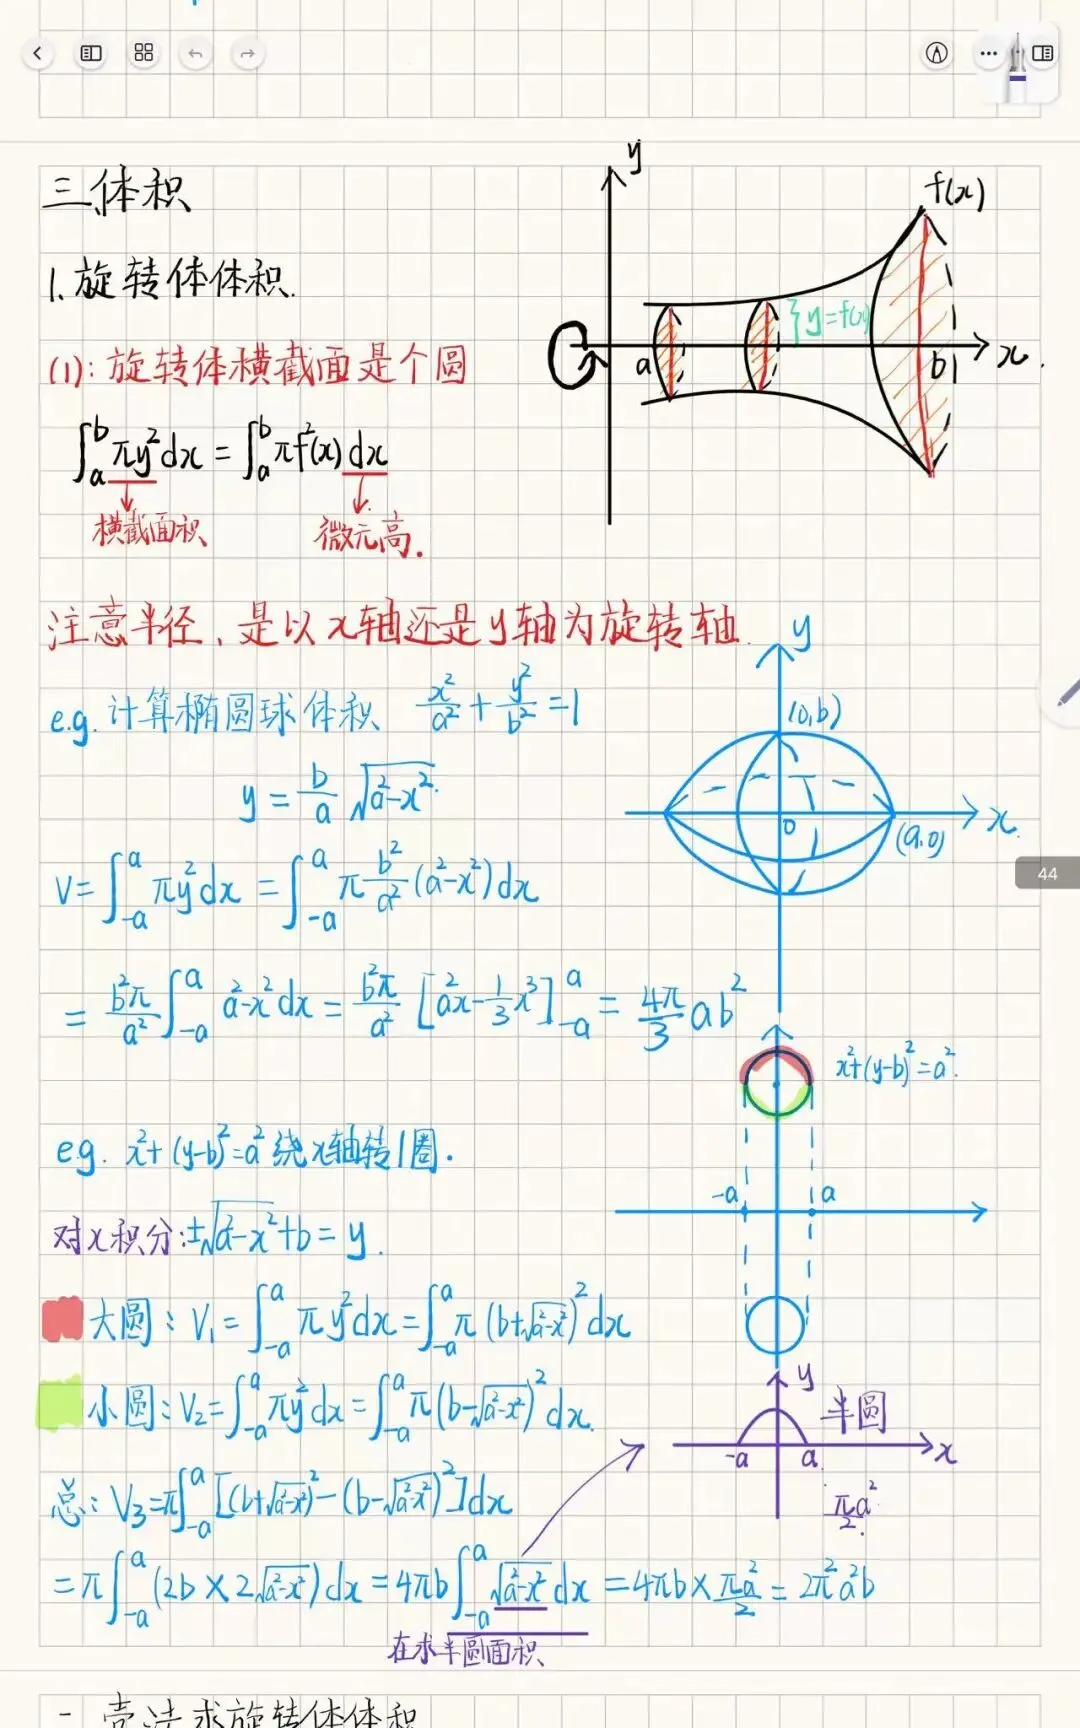 三、体积
y
f(x)
1. 旋转体体积.
{y=f(x)
a
b
x.
(1): 旋转体横截面是个圆
∫_a^b πy²dx = ∫_a^b πf²(x)dx
横截面积
微元高.
注意半径, 是以x轴还是y轴为旋转轴.
y
e.g. 计算椭圆球体积 x²/a² + y²/b² = 1
(0,b)
y = b/a √(a²-x²).
0
x.
(a,0)
V = ∫_{-a}^a πy²dx = ∫_{-a}^a π b²/a² (a²-x²)dx
44
= b²π/a² ∫_{-a}^a a²-x²dx = b²π/a² [a²x - 1/3 x³]_{-a}^a = 4π/3 ab²
x²+(y-b)²=a².
e.g. x²+(y-b)²=a² 绕x轴转1圈.
-a
a
对x积分: ±√(a²-x²)+b = y.
大圆: V₁ = ∫_{-a}^a πy²dx = ∫_{-a}^a π(b+√(a²-x²))²dx
小圆: V₂ = ∫_{-a}^a πy²dx = ∫_{-a}^a π(b-√(a²-x²))²dx.
y
半圆
-a
a.
x
πa²/2.
总: V₃ = π∫_{-a}^a [(b+√(a²-x²))² - (b-√(a²-x²))²]dx
= π∫_{-a}^a (2b × 2√(a²-x²))dx = 4πb ∫_{-a}^a √(a²-x²)dx = 4πb × πa²/2 = 2π²a²b
在求半圆面积
二 壳法求旋转体体积